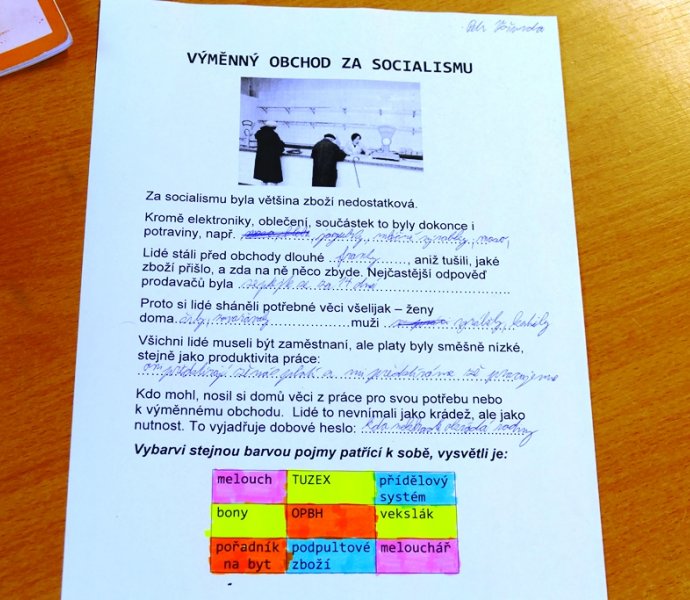 Petr
VÝMĚNNÝ OBCHOD ZA SOCIALISMU
Za socialismu byla většina zboží nedostatková.
Kromě elektroniky, oblečení, součástek to byly dokonce i
potraviny, např. jogurty, mléčné výrobky, maso,
Lidé stáli před obchody dlouhé fronty, aniž tušili, jaké
zboží přišlo, a zda na ně něco zbyde. Nejčastější odpověď
prodavačů byla zeptejte se za 14 dní
Proto si lidé sháněli potřebné věci všelijak – ženy
doma šily, muži vyráběly, kutily
Všichni lidé museli být zaměstnaní, ale platy byly směšně nízké,
stejně jako produktivita práce:
oni předstírají že nás platí a mi předstíráme že pracujeme
Kdo mohl, nosil si domů věci z práce pro svou potřebu nebo
k výměnnému obchodu. Lidé to nevnímali jako krádež, ale jako
nutnost. To vyjadřuje dobové heslo: Kdo nekrade okrádá rodiny
Vybarvi stejnou barvou pojmy patřící k sobě, vysvětli je:
melouch TUZEX přídělový
systém
bony OPBH vekslák
pořadník podpultové melouchář
na byt zboží